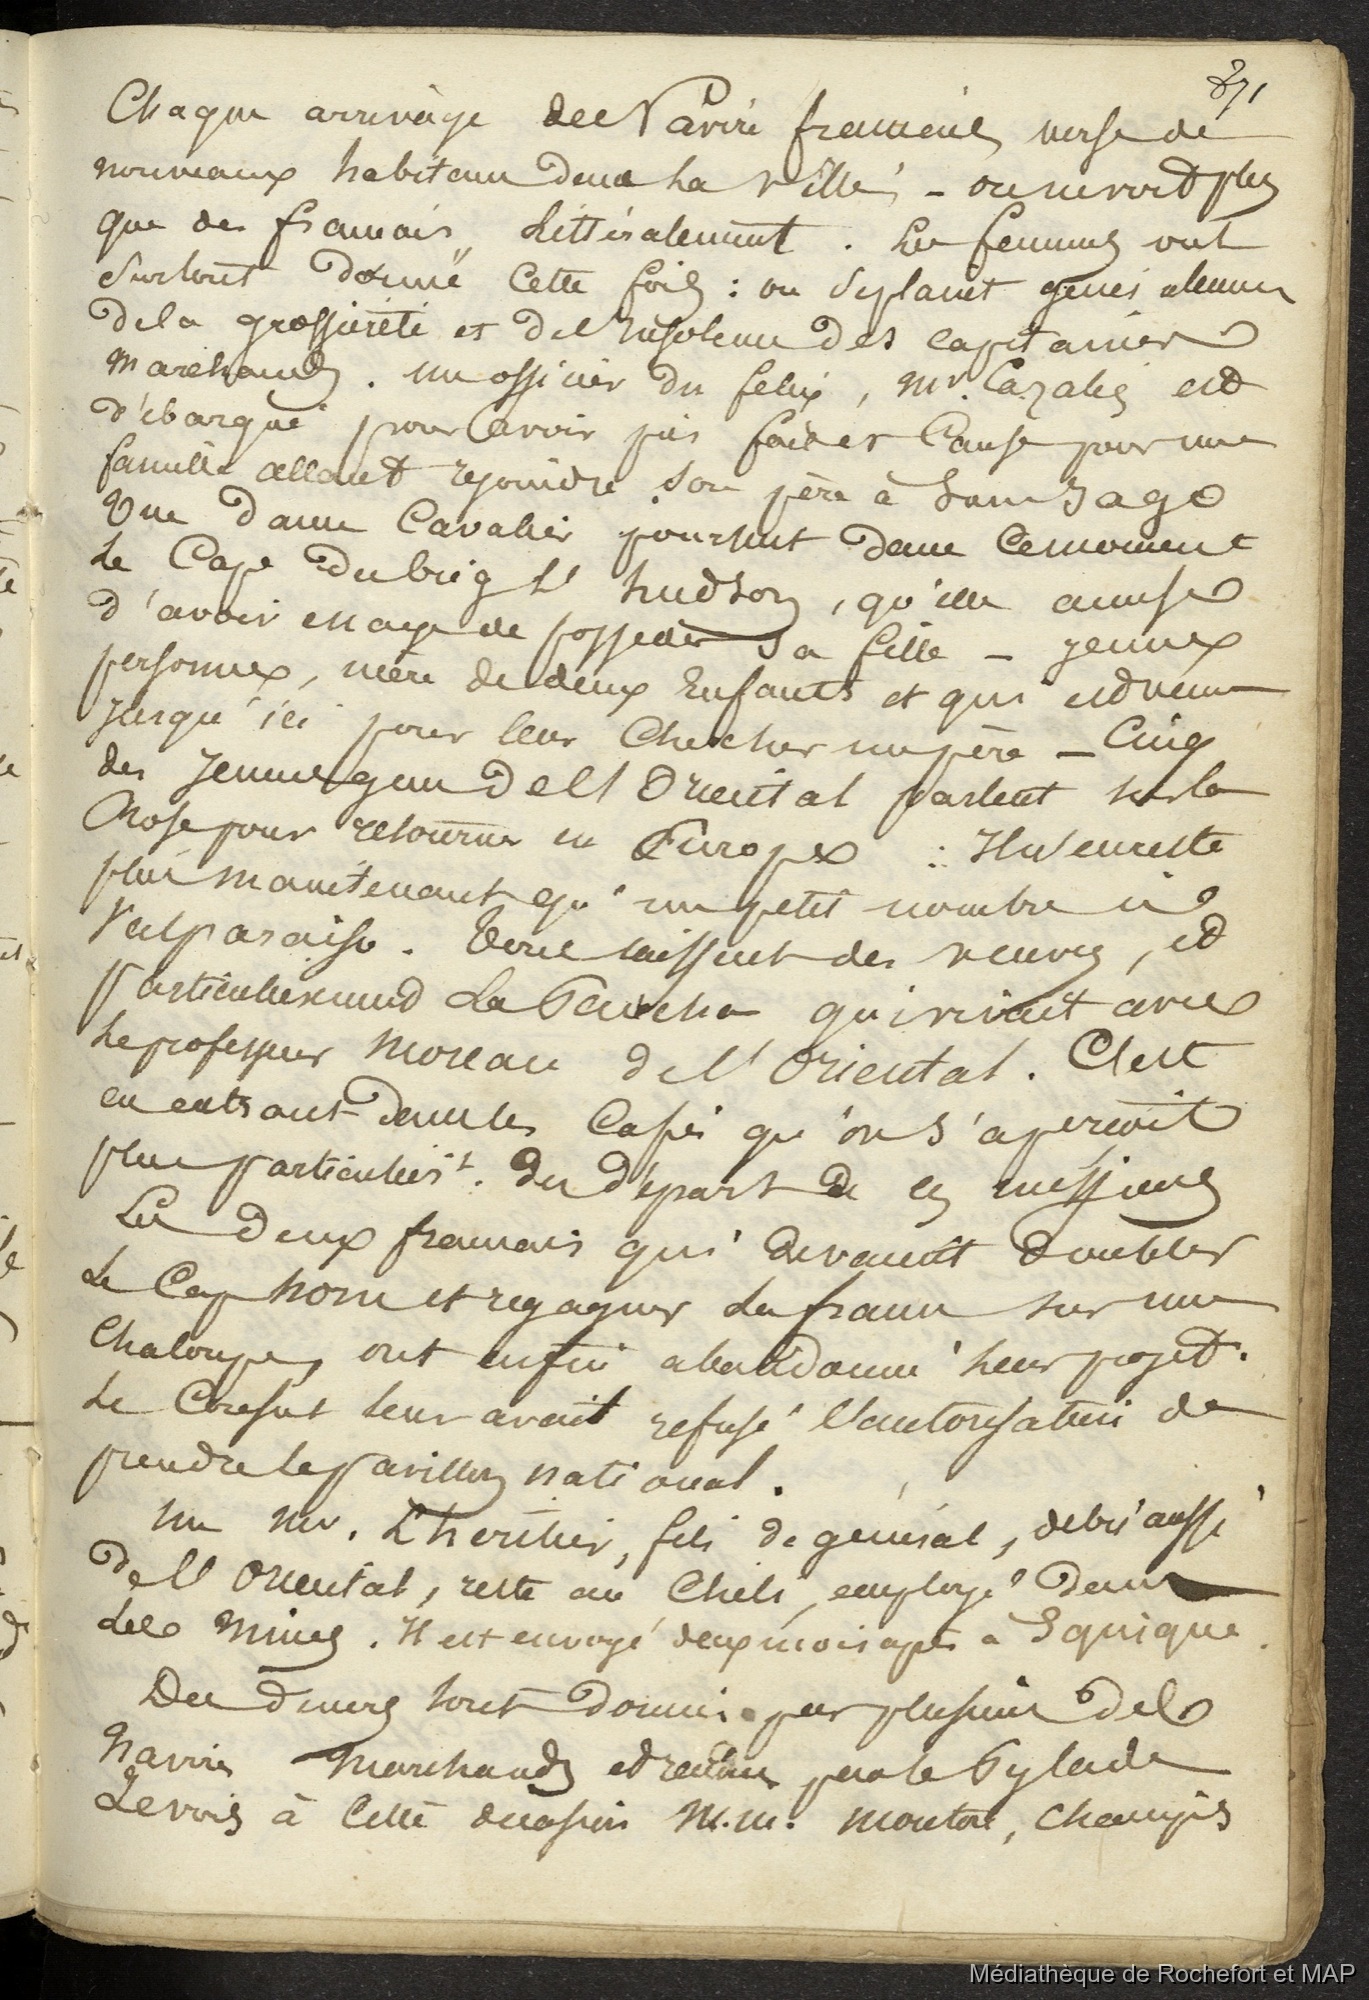 271
Chaque arrivage de Navire français verse de
nouveaux habitans dans la ville – on ne voit plus
que des français littéralement. Les femmes ont
surtout donné cette fois : on se plaint généralement
de la grossiereté et de l'insolence des capitaines
marchands. un officier du felix, Mr. Cazalis est
débarqué pour avoir pris fait et Cause pour une
famille allant rejoindre son père à Santiago
Une dame Cavalier poursuit dans ce moment
le Cape du brig l'hudson, qu'elle accuse
d'avoir essayé de posseder sa fille – jeune
personne, mère de deux enfants et qui est venue
jusqu'ici pour leur chercher un père – Cinq
des jeunes gens de l'Oriental partent sur la
Rose pour retourner en Europe : Il n'en reste
plus maintenant qu'un petit nombre à
Valparaiso. Tous laissent des veuves, et
particulierement La Pancha qui vivait avec
le professeur Moreau de l'Oriental. C'est
en entrant dans les Cafés qu'on s'aperçoit
plus particulier.t du départ de ces messieurs
Les deux français qui devaient doubler
le Cap horn et regagner la france sur une
Chaloupe, ont enfin abandonné leur projet.
Le Consul leur avait refusé l'autorisation de
prendre le pavillon national.
un Mr. Lheritier, fils de général, débris aussi
de l'Oriental, reste au Chili, employé dans
les Mines. Il est envoyé deux mois après à Iquique.
Des diners sont donnés par plusieurs de
navires marchands et rendus par le Pylade
Je vois à cette occasion M.M. Mouton, Changis